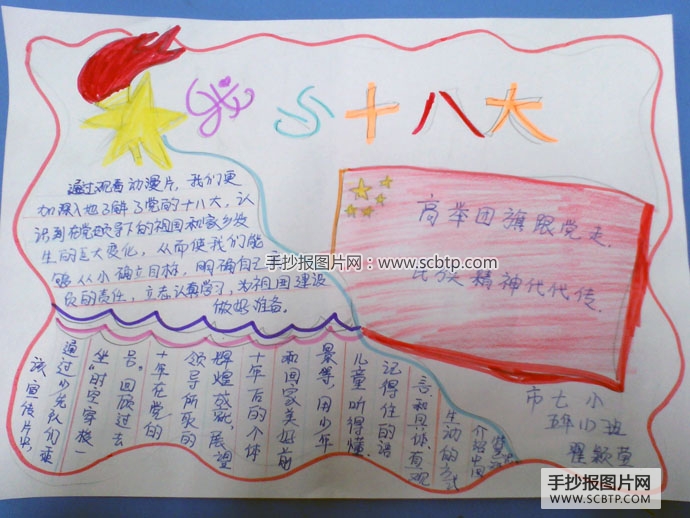 我与十八大
通过观看动漫片，我们更
加深入地了解了党的十八大，认
识到在党领导下的祖国和家乡发
生的巨大变化，从而使我们能
够从小确立目标，明确自己
负的责任，立志认真学习，为祖国建设
做好准备。
高举团旗跟党走，
民族精神代代传。
手抄报图片网：www.scbtp.com
该宣传片中，
通过少先队们乘
坐“时空穿梭
号”回顾过去
十年在党的
领导所取的
辉煌成就，展望
十年后的个体
和国家美好前
景等，用少年
儿童听得懂、
记得住的语
言和具体、直观
生动的方式
介绍中国
市七小
五年小班
翟颖莹
手抄报图片网
WWW.SCBTP.COM